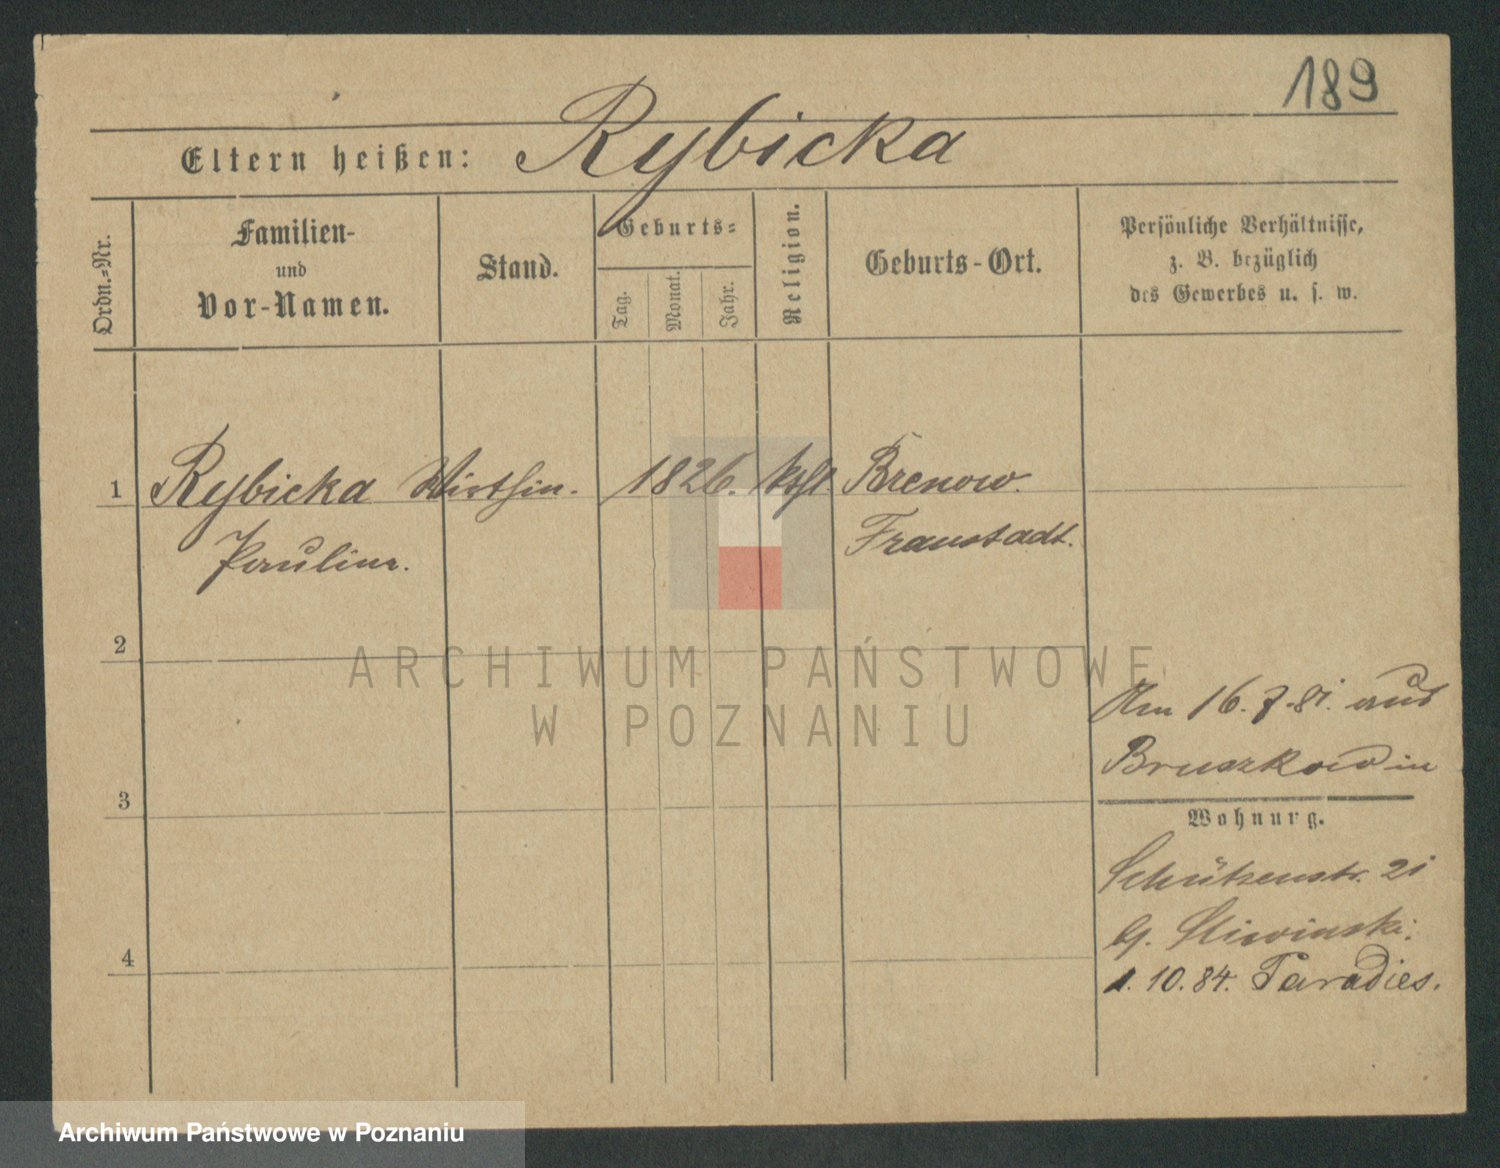 189
Eltern heißen: Rybicka
Ordn.-Nr.
Familien-
und
Vor-Namen.
Stand.
Geburts-
Tag.
Monat.
Jahr.
Religion.
Geburts-Ort.
Persönliche Verhältnisse,
z. B. bezüglich
des Gewerbes u. s. w.
1 Rybicka Wirthin. 1826. kthl. Brenow.
Pauline. Fraustadt.
2
ARCHIWUM PAŃSTWOWE
W POZNANIU
Am 16. 7. 81. aus
Bruszkow in
3
Wohnung.
Schützenstr. 21
b. Sliwinski.
4
1. 10. 84. Paradies.
Archiwum Państwowe w Poznaniu